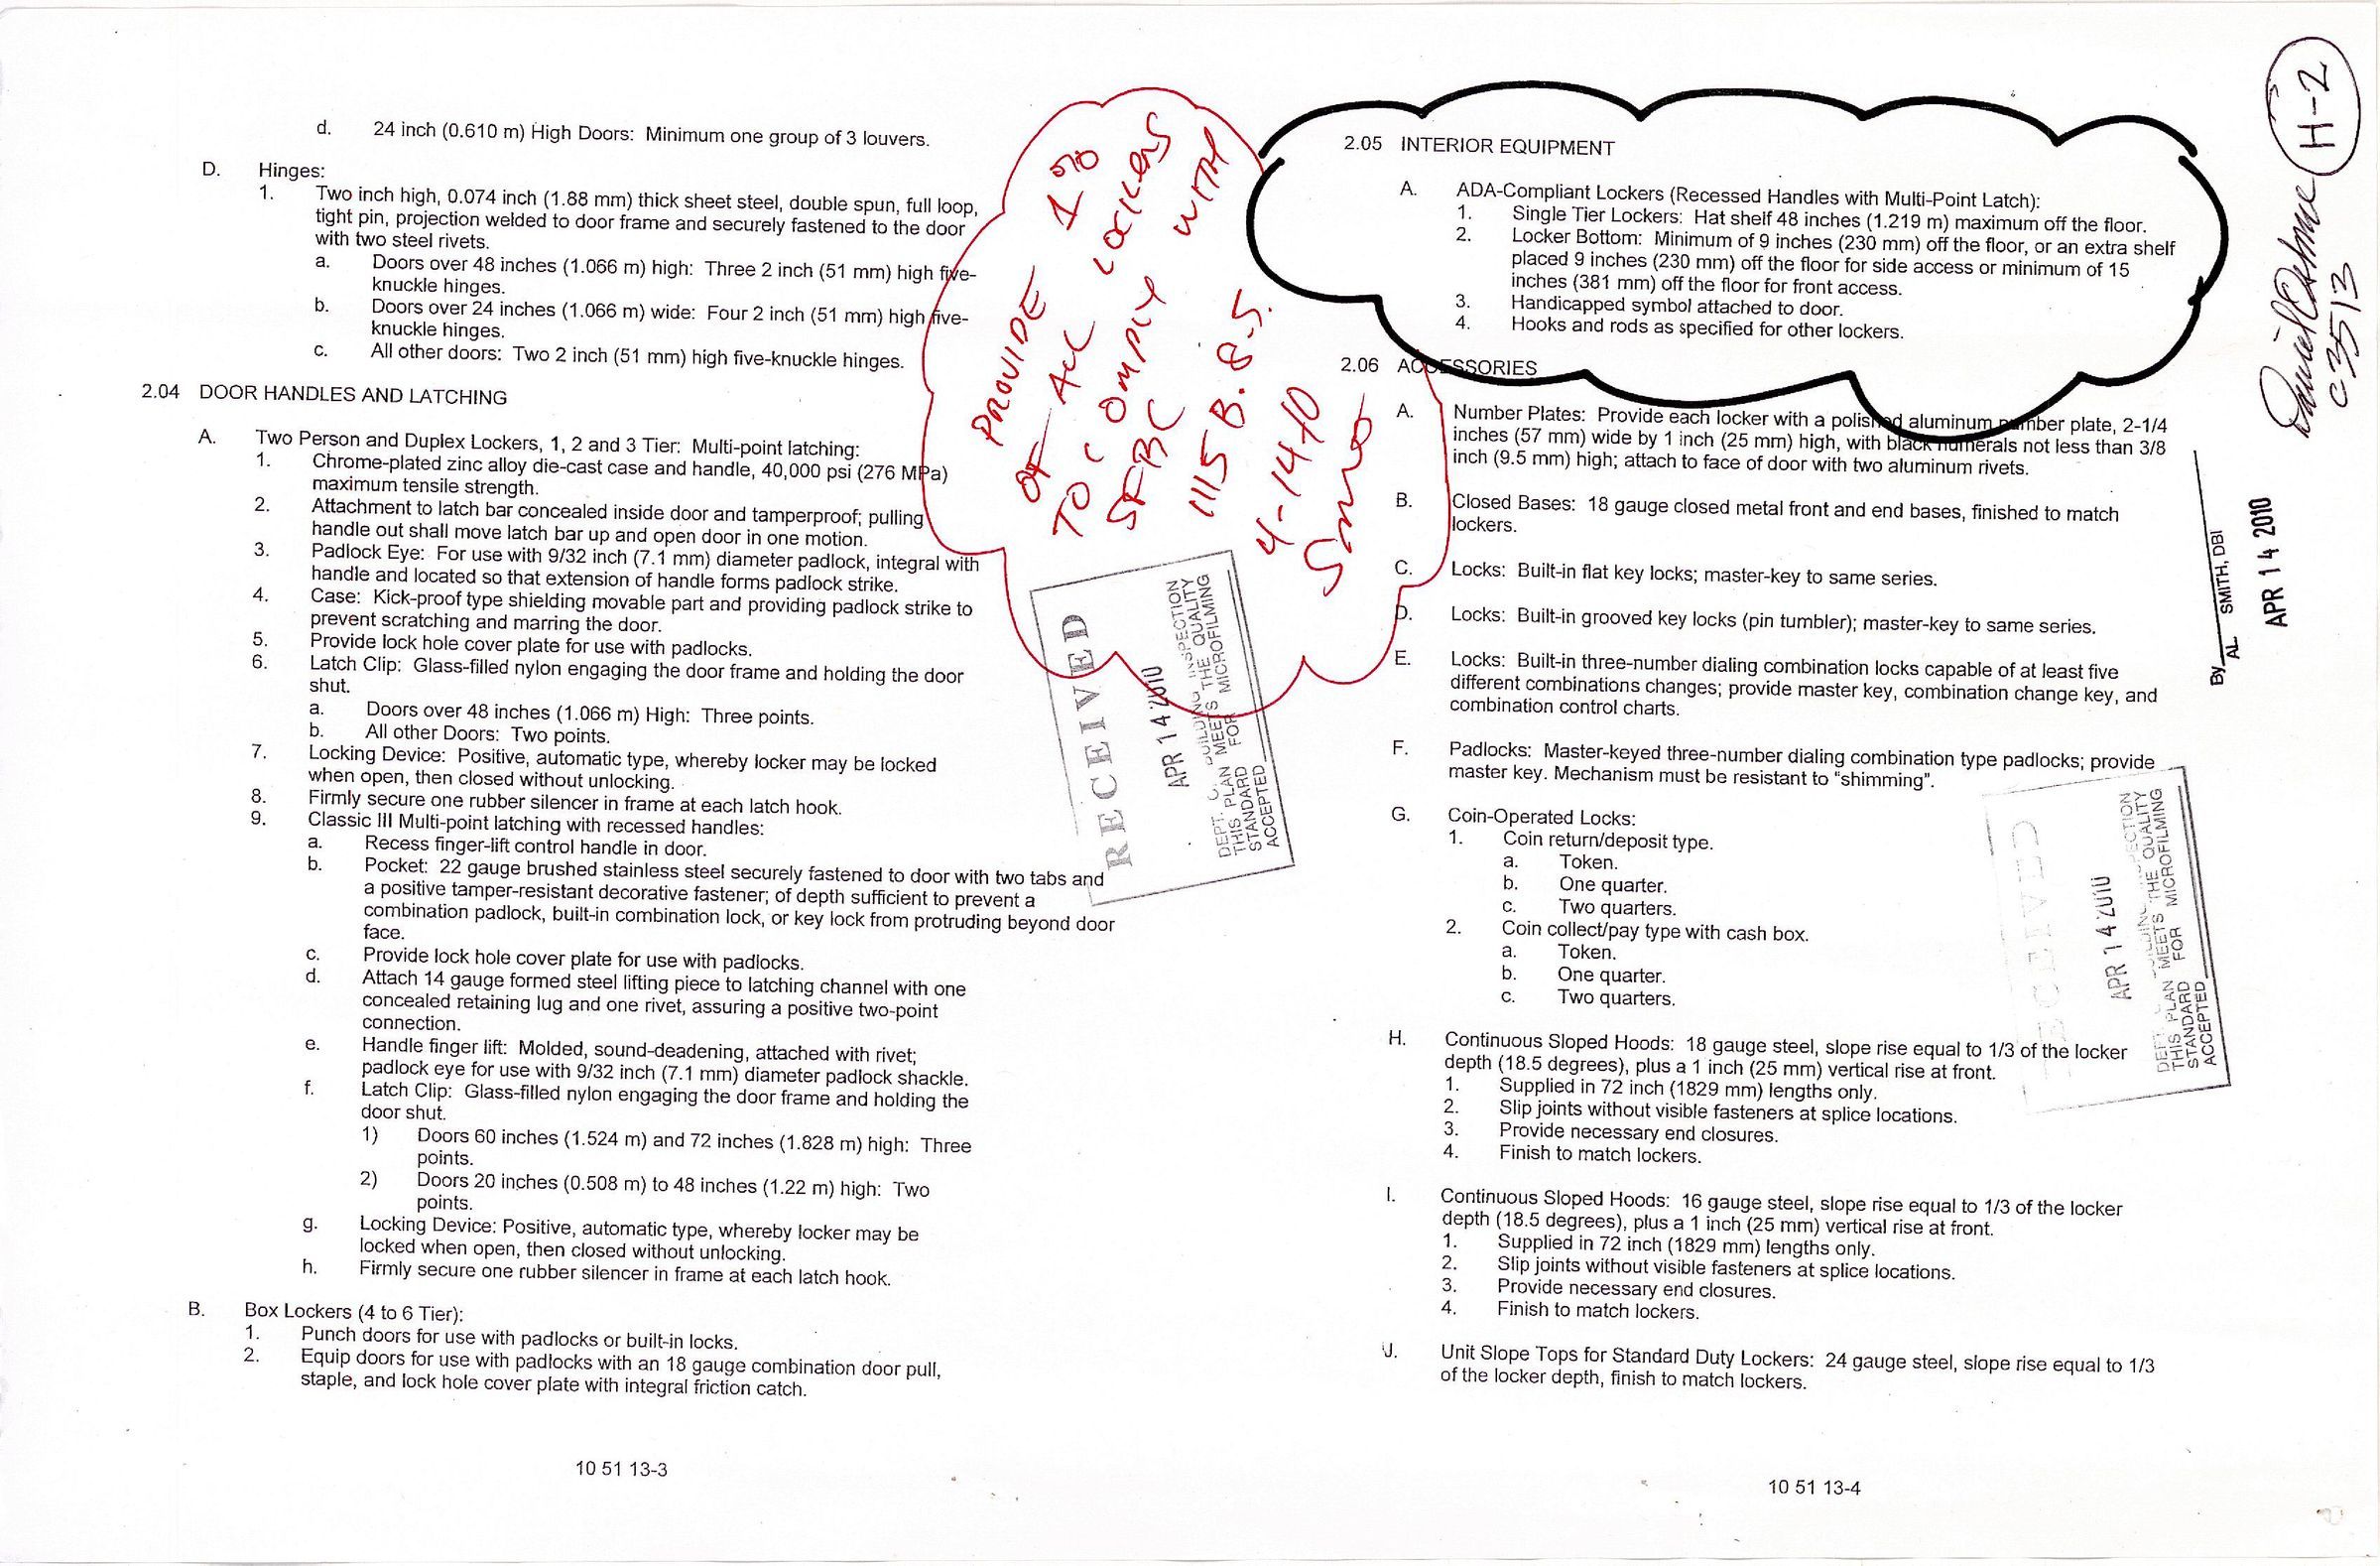 d. 24 inch (0.610 m) High Doors: Minimum one group of 3 louvers.
D. Hinges:
1. Two inch high, 0.074 inch (1.88 mm) thick sheet steel, double spun, full loop,
tight pin, projection welded to door frame and securely fastened to the door
with two steel rivets.
a. Doors over 48 inches (1.066 m) high: Three 2 inch (51 mm) high five-
knuckle hinges.
b. Doors over 24 inches (1.066 m) wide: Four 2 inch (51 mm) high five-
knuckle hinges.
c. All other doors: Two 2 inch (51 mm) high five-knuckle hinges.
2.04 DOOR HANDLES AND LATCHING
A. Two Person and Duplex Lockers, 1, 2 and 3 Tier: Multi-point latching:
1. Chrome-plated zinc alloy die-cast case and handle, 40,000 psi (276 MPa)
maximum tensile strength.
2. Attachment to latch bar concealed inside door and tamperproof; pulling
handle out shall move latch bar up and open door in one motion.
3. Padlock Eye: For use with 9/32 inch (7.1 mm) diameter padlock, integral with
handle and located so that extension of handle forms padlock strike.
4. Case: Kick-proof type shielding movable part and providing padlock strike to
prevent scratching and marring the door.
5. Provide lock hole cover plate for use with padlocks.
6. Latch Clip: Glass-filled nylon engaging the door frame and holding the door
shut.
a. Doors over 48 inches (1.066 m) High: Three points.
b. All other Doors: Two points.
7. Locking Device: Positive, automatic type, whereby locker may be locked
when open, then closed without unlocking.
8. Firmly secure one rubber silencer in frame at each latch hook.
9. Classic III Multi-point latching with recessed handles:
a. Recess finger-lift control handle in door.
b. Pocket: 22 gauge brushed stainless steel securely fastened to door with two tabs and
a positive tamper-resistant decorative fastener; of depth sufficient to prevent a
combination padlock, built-in combination lock, or key lock from protruding beyond door
face.
c. Provide lock hole cover plate for use with padlocks.
d. Attach 14 gauge formed steel lifting piece to latching channel with one
concealed retaining lug and one rivet, assuring a positive two-point
connection.
e. Handle finger lift: Molded, sound-deadening, attached with rivet;
padlock eye for use with 9/32 inch (7.1 mm) diameter padlock shackle.
f. Latch Clip: Glass-filled nylon engaging the door frame and holding the
door shut.
1) Doors 60 inches (1.524 m) and 72 inches (1.828 m) high: Three
points.
2) Doors 20 inches (0.508 m) to 48 inches (1.22 m) high: Two
points.
g. Locking Device: Positive, automatic type, whereby locker may be
locked when open, then closed without unlocking.
h. Firmly secure one rubber silencer in frame at each latch hook.
B. Box Lockers (4 to 6 Tier):
1. Punch doors for use with padlocks or built-in locks.
2. Equip doors for use with padlocks with an 18 gauge combination door pull,
staple, and lock hole cover plate with integral friction catch.
10 51 13-3
PROVIDE 1%
OF ALL LOCKERS
TO COMPLY WITH
SFBC
1115B.8.5.
4-14-10
RECEIVED
APR 14 2010
DEPT. OF BUILDING INSPECTION
THIS PLAN MEETS THE QUALITY
STANDARD FOR MICROFILMING
ACCEPTED
2.05 INTERIOR EQUIPMENT
A. ADA-Compliant Lockers (Recessed Handles with Multi-Point Latch):
1. Single Tier Lockers: Hat shelf 48 inches (1.219 m) maximum off the floor.
2. Locker Bottom: Minimum of 9 inches (230 mm) off the floor, or an extra shelf
placed 9 inches (230 mm) off the floor for side access or minimum of 15
inches (381 mm) off the floor for front access.
3. Handicapped symbol attached to door.
4. Hooks and rods as specified for other lockers.
2.06 ACCESSORIES
A. Number Plates: Provide each locker with a polished aluminum number plate, 2-1/4
inches (57 mm) wide by 1 inch (25 mm) high, with black numerals not less than 3/8
inch (9.5 mm) high; attach to face of door with two aluminum rivets.
B. Closed Bases: 18 gauge closed metal front and end bases, finished to match
lockers.
C. Locks: Built-in flat key locks; master-key to same series.
D. Locks: Built-in grooved key locks (pin tumbler); master-key to same series.
E. Locks: Built-in three-number dialing combination locks capable of at least five
different combinations changes; provide master key, combination change key, and
combination control charts.
F. Padlocks: Master-keyed three-number dialing combination type padlocks; provide
master key. Mechanism must be resistant to "shimming".
G. Coin-Operated Locks:
1. Coin return/deposit type.
a. Token.
b. One quarter.
c. Two quarters.
2. Coin collect/pay type with cash box.
a. Token.
b. One quarter.
c. Two quarters.
H. Continuous Sloped Hoods: 18 gauge steel, slope rise equal to 1/3 of the locker
depth (18.5 degrees), plus a 1 inch (25 mm) vertical rise at front.
1. Supplied in 72 inch (1829 mm) lengths only.
2. Slip joints without visible fasteners at splice locations.
3. Provide necessary end closures.
4. Finish to match lockers.
I. Continuous Sloped Hoods: 16 gauge steel, slope rise equal to 1/3 of the locker
depth (18.5 degrees), plus a 1 inch (25 mm) vertical rise at front.
1. Supplied in 72 inch (1829 mm) lengths only.
2. Slip joints without visible fasteners at splice locations.
3. Provide necessary end closures.
4. Finish to match lockers.
J. Unit Slope Tops for Standard Duty Lockers: 24 gauge steel, slope rise equal to 1/3
of the locker depth, finish to match lockers.
10 51 13-4
RECEIVED
APR 14 2010
DEPT. OF BUILDING INSPECTION
THIS PLAN MEETS THE QUALITY
STANDARD FOR MICROFILMING
ACCEPTED
H-2
C3513
By
AL SMITH, DBI
APR 14 2010